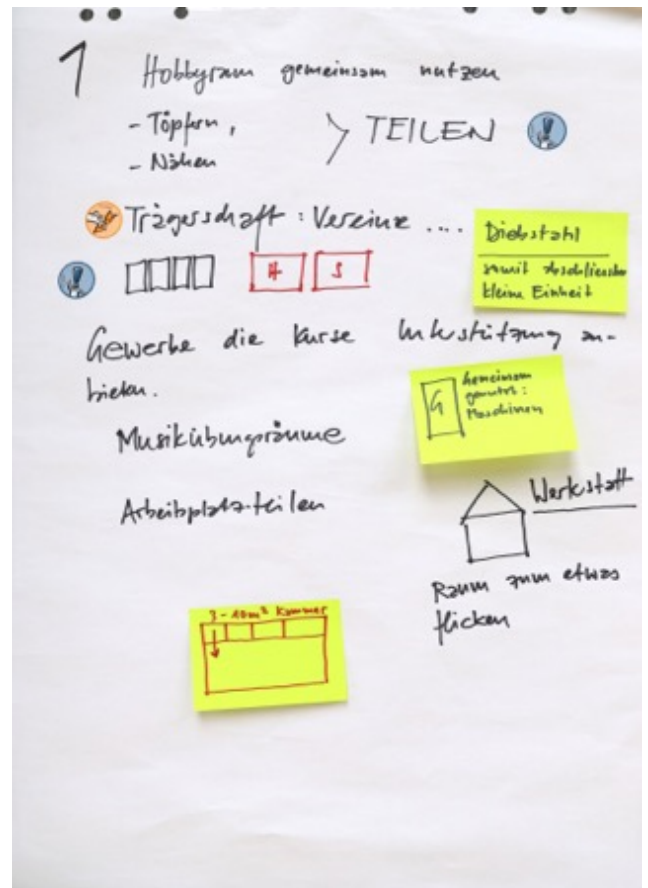 1 Hobbyraum gemeinsam nutzen
- Töpfern,
- Nähen
TEILEN
Trägerschaft : Vereine ....
Diebstahl
somit abschliessbar
kleine Einheit
H S
Gewerbe die Kurse Unterstützung an-
bieten.
G
Gemeinsam
genutzt:
Maschinen
Musikübungsräume
Arbeitsplatz-teilen
Werkstatt
Raum zum etwas
flicken
3-10m² Kammer